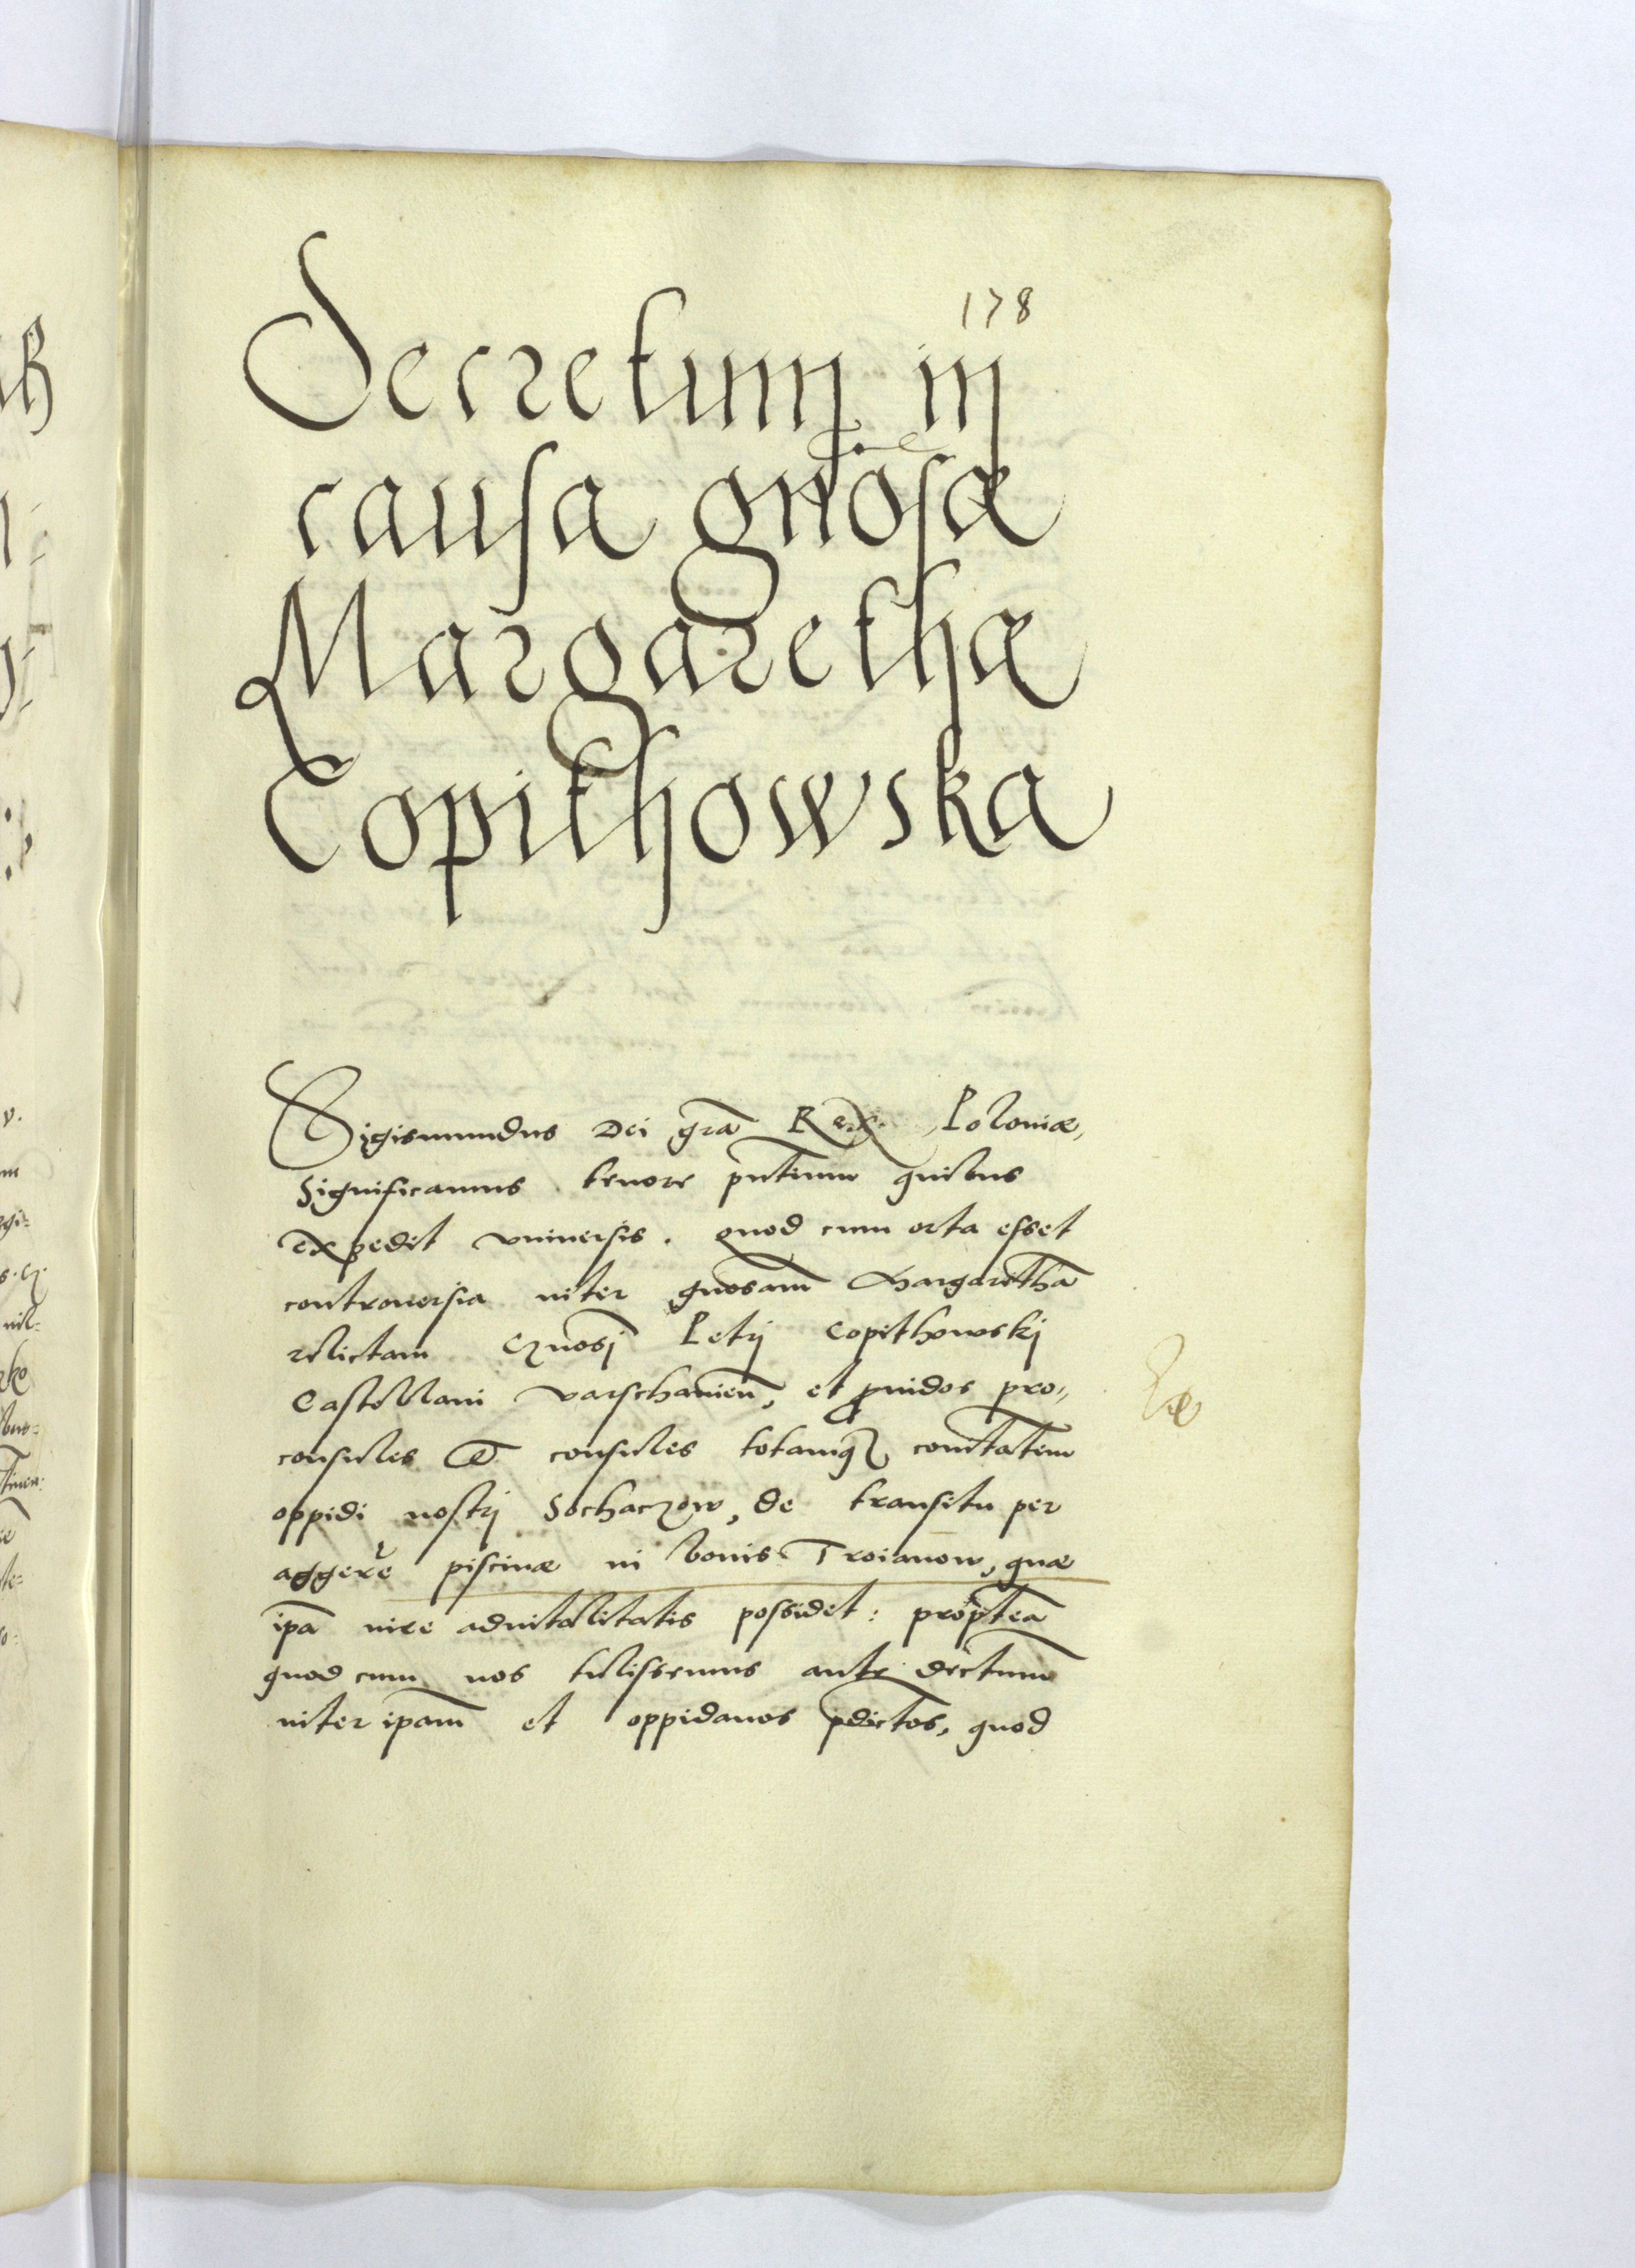 178
Decretum in
causa gnosæ
Margarethæ
Copithowska
Sigismundus Dei grā Rex Poloniæ,
Significamus tenore pntium quibus
expedit vniuersis. quod cum orta esset
controuersia inter gnosam Margarethā
relictam Gnosj Petrj Copithowskj
Castellani varschavien, et prouidos pro,,
consules et consules totamq3 comtatem
oppidi nostrj Sochaczow, de transitu per
aggerē piscinæ in bonis Troianow, quæ
ipā iure aduitalitatis possidet: proptea
quod cum nos tulissemus ante dectum
inter ipam et oppidanos pdictos, quod